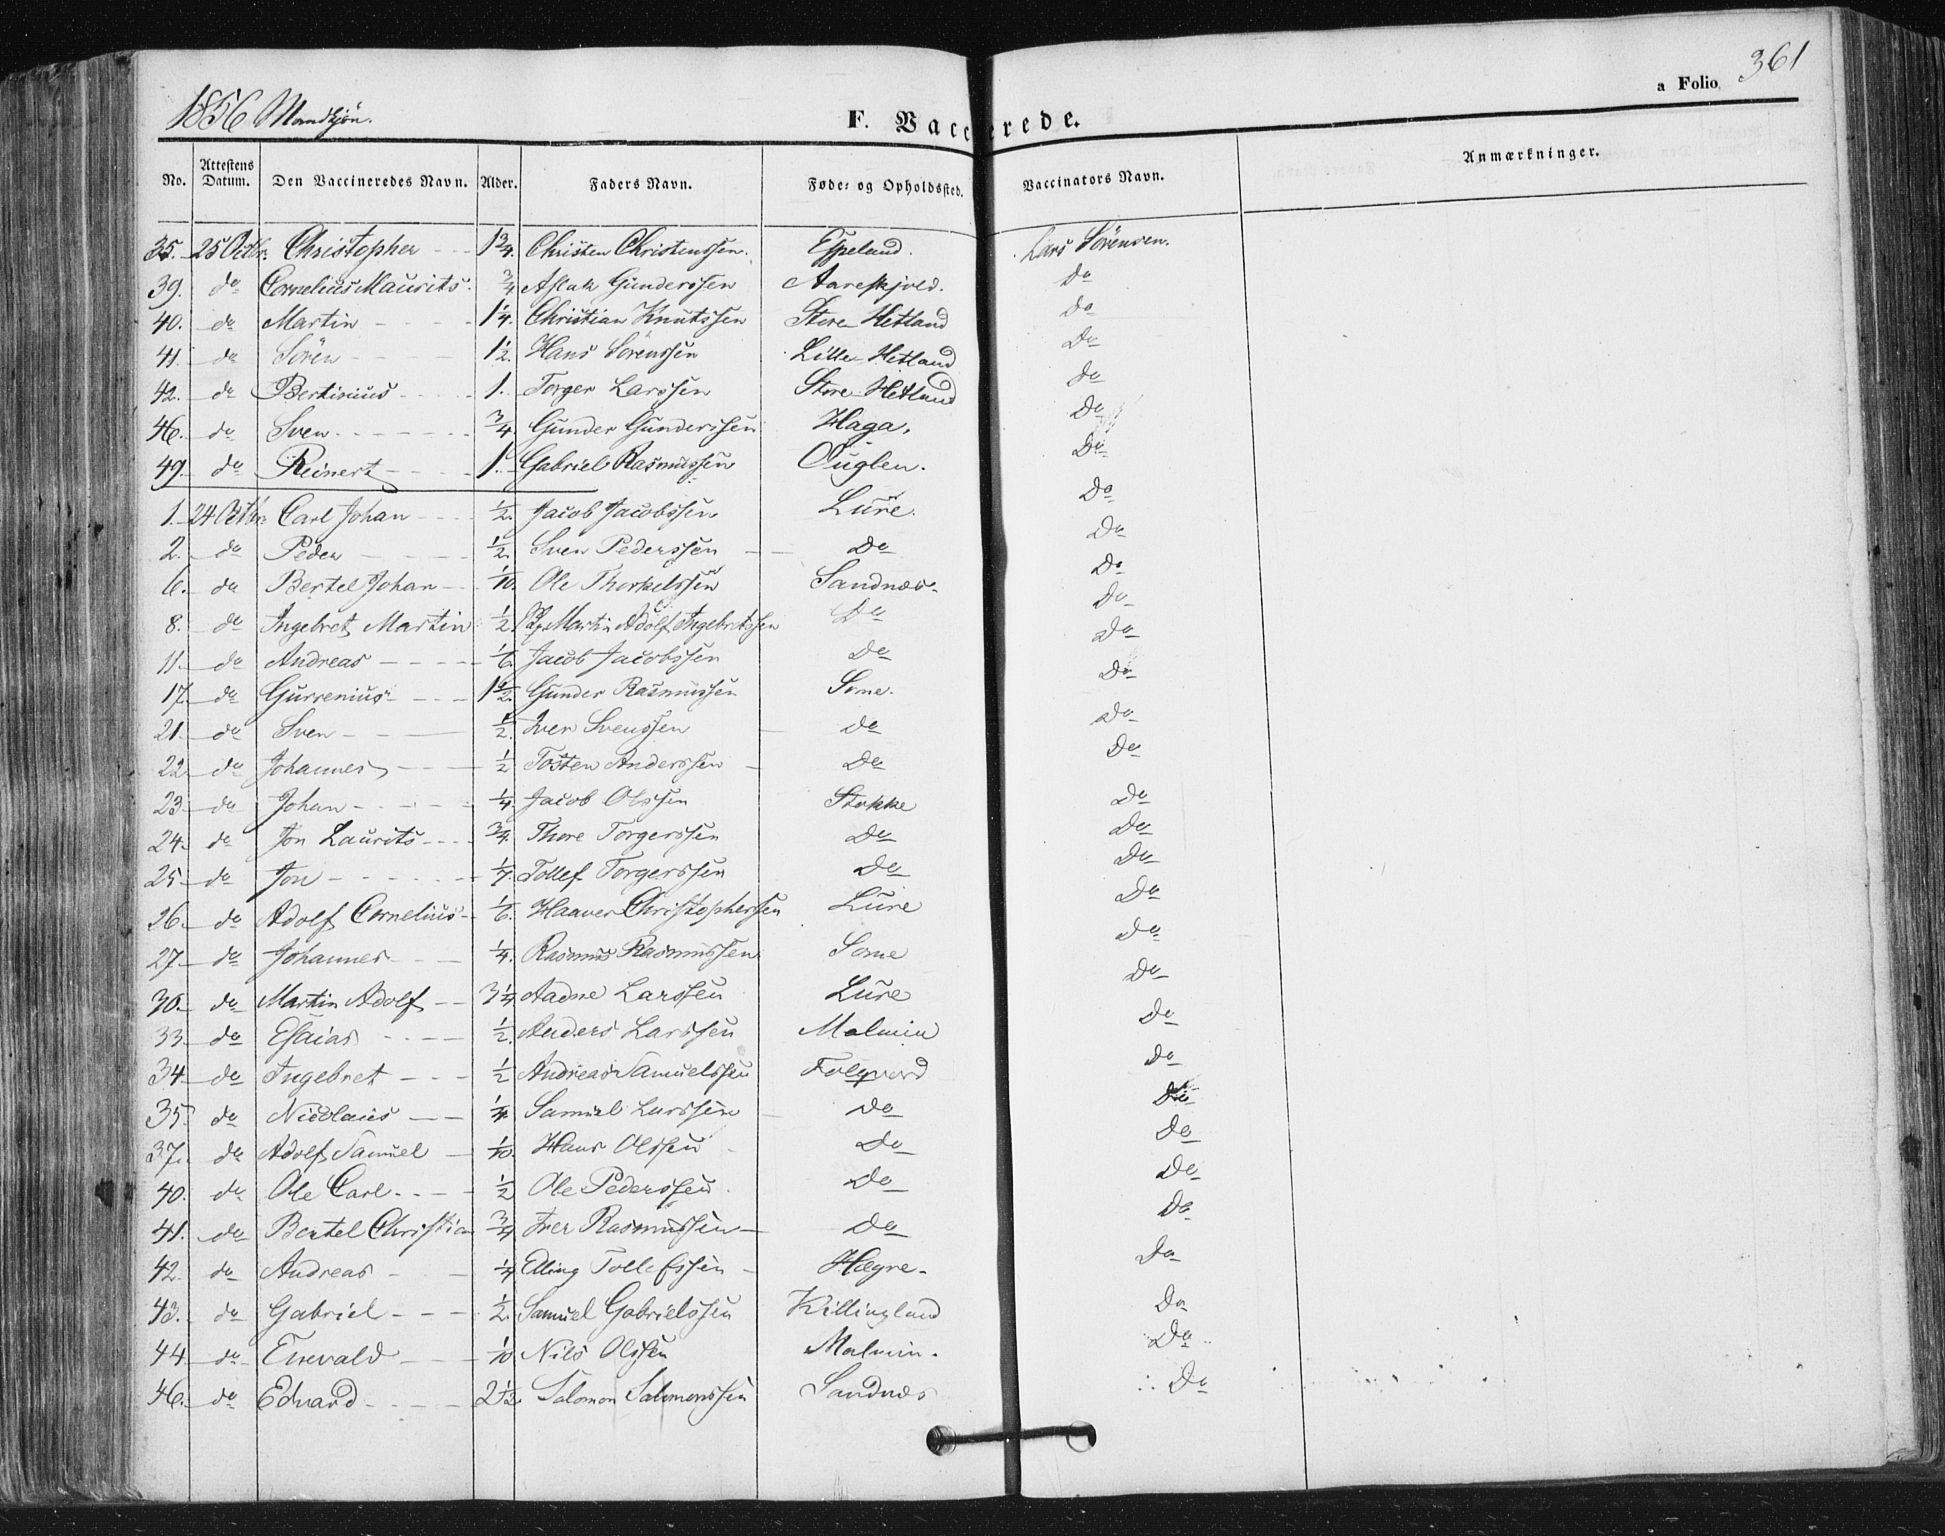 361
a Folio
1856 Mandkjøn.
F. Vaccinerede.
No. Attestens Datum. Den Vaccineredes Navn. Alder. Faders Navn. Føde- og Opholdssted. Vaccinators Navn. Anmærkninger.
35. 25 Octbr. Christopher 1 3/4. Christen Christenssen. Espeland. Lars Sörensen.
39. do Cornelius Maurits. 3/4 Aslak Gunderssen Aareskjold. Do
40. do Martin 1 1/4. Christian Knutssen Store Hetland Do
41. do Sören 1 1/2. Hans Sörenssen Lille Hetland Do
42. do Bertinius 1. Torger Larssen Store Hetland Do
46. do Sven 3/4. Gunder Gunderssen Haga. Do
49. do Reinert 1. Gabriel Rasmussen Ouglen. Do
1. 24 Octbr. Carl Johan 1/2. Jacob Jacobssen Lure. Do
2. do Peder 1/2. Sven Pederssen Do Do
6. do Bertel Johan 1/10. Ole Thorkelssen Sandnes. Do
8. do Ingebret Martin 1/2. Martin Adolf Ingebretssen Do Do
11. do Andreas 1/6. Jacob Jacobssen Do Do
17. do Gurrenius 1 1/2. Gunder Rasmussen Some. Do
21. do Sven 1/2. Iver Svenssen do Do
22. do Johannes 1/2 Tosten Anderssen Do Do
23. do Johan 1/4. Jacob Olssen Stokke Do
24. do Jon Laurits 3/4. Thore Torgerssen Do Do
25. do Jon 1/7. Tollef Torgerssen Do Do
26. do Adolf Cornelius 1/6. Haaver Christophersen Lure Do
27. do Johannes 1/4. Rasmus Rasmussen Some Do
30. do Martin Adolf 3 1/4 Aadne Larssen Lure Do
33. do Esaias 1/2. Anders Larssen Malmin Do
34. do Ingebret 1/2 Andreas Samuelssen Folqvord Do
35. do Nicolaus 1/4. Samuel Larssen Do Do
37. do Adolf Samuel 1/10. Hans Olssen Do Do
40. do Ole Carl 1/2 Ole Pederssen Do Do
41. do Bertel Christian 3/4 Iver Rasmussen Do Do
42. do Andreas 1/4 Elling Tollefssen Høyre. Do
43. do Gabriel 1/2. Samuel Gabrielssen Killingland Do
44. do Enevald 1/10 Nils Olssen Malmin. Do
46. do Edvard 2 1/2. Salomon Salomonssen Sandnes Do